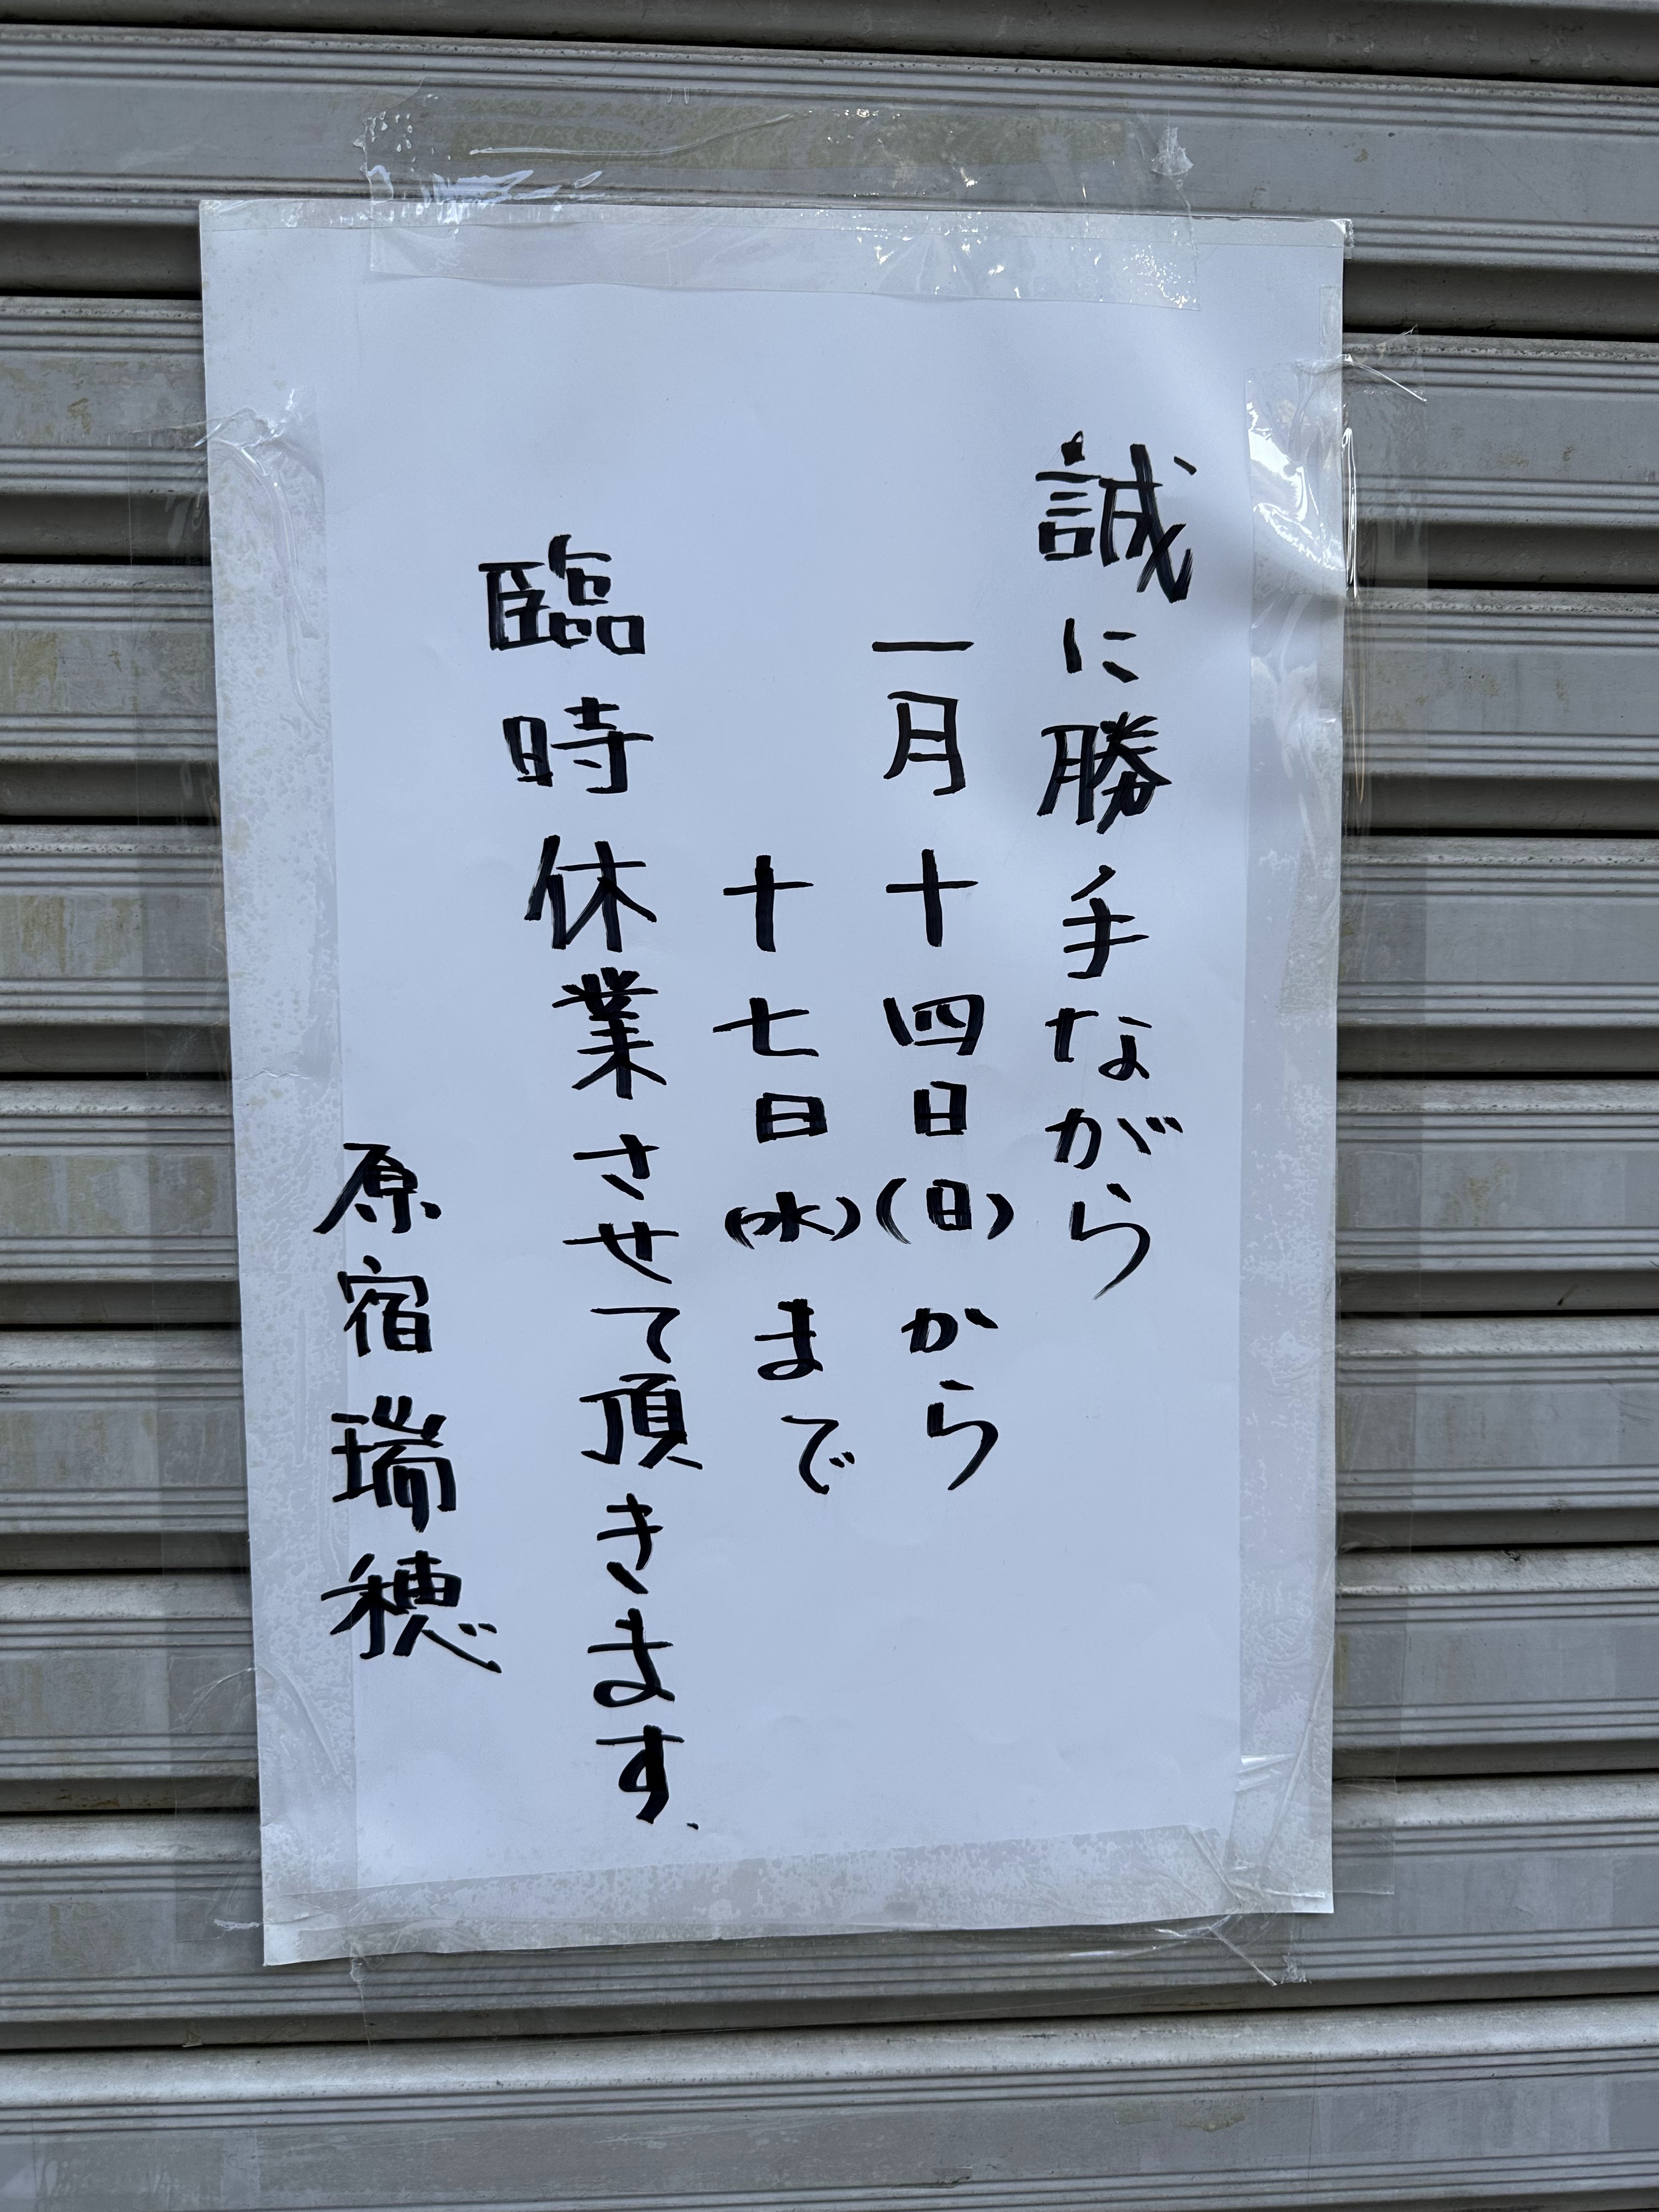 誠に勝手ながら
一月十四日(日)から
十七日(水)まで
臨時休業させて頂きます、
原宿瑞穂